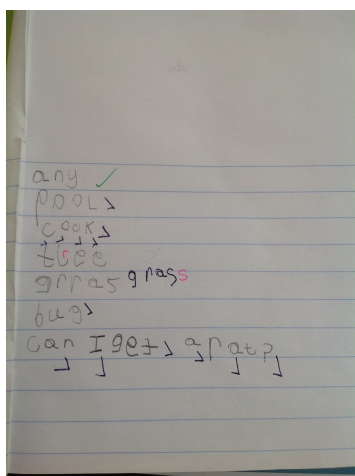 any ✓
pool
cook
tree
grras grass
bug
can I get a pat?